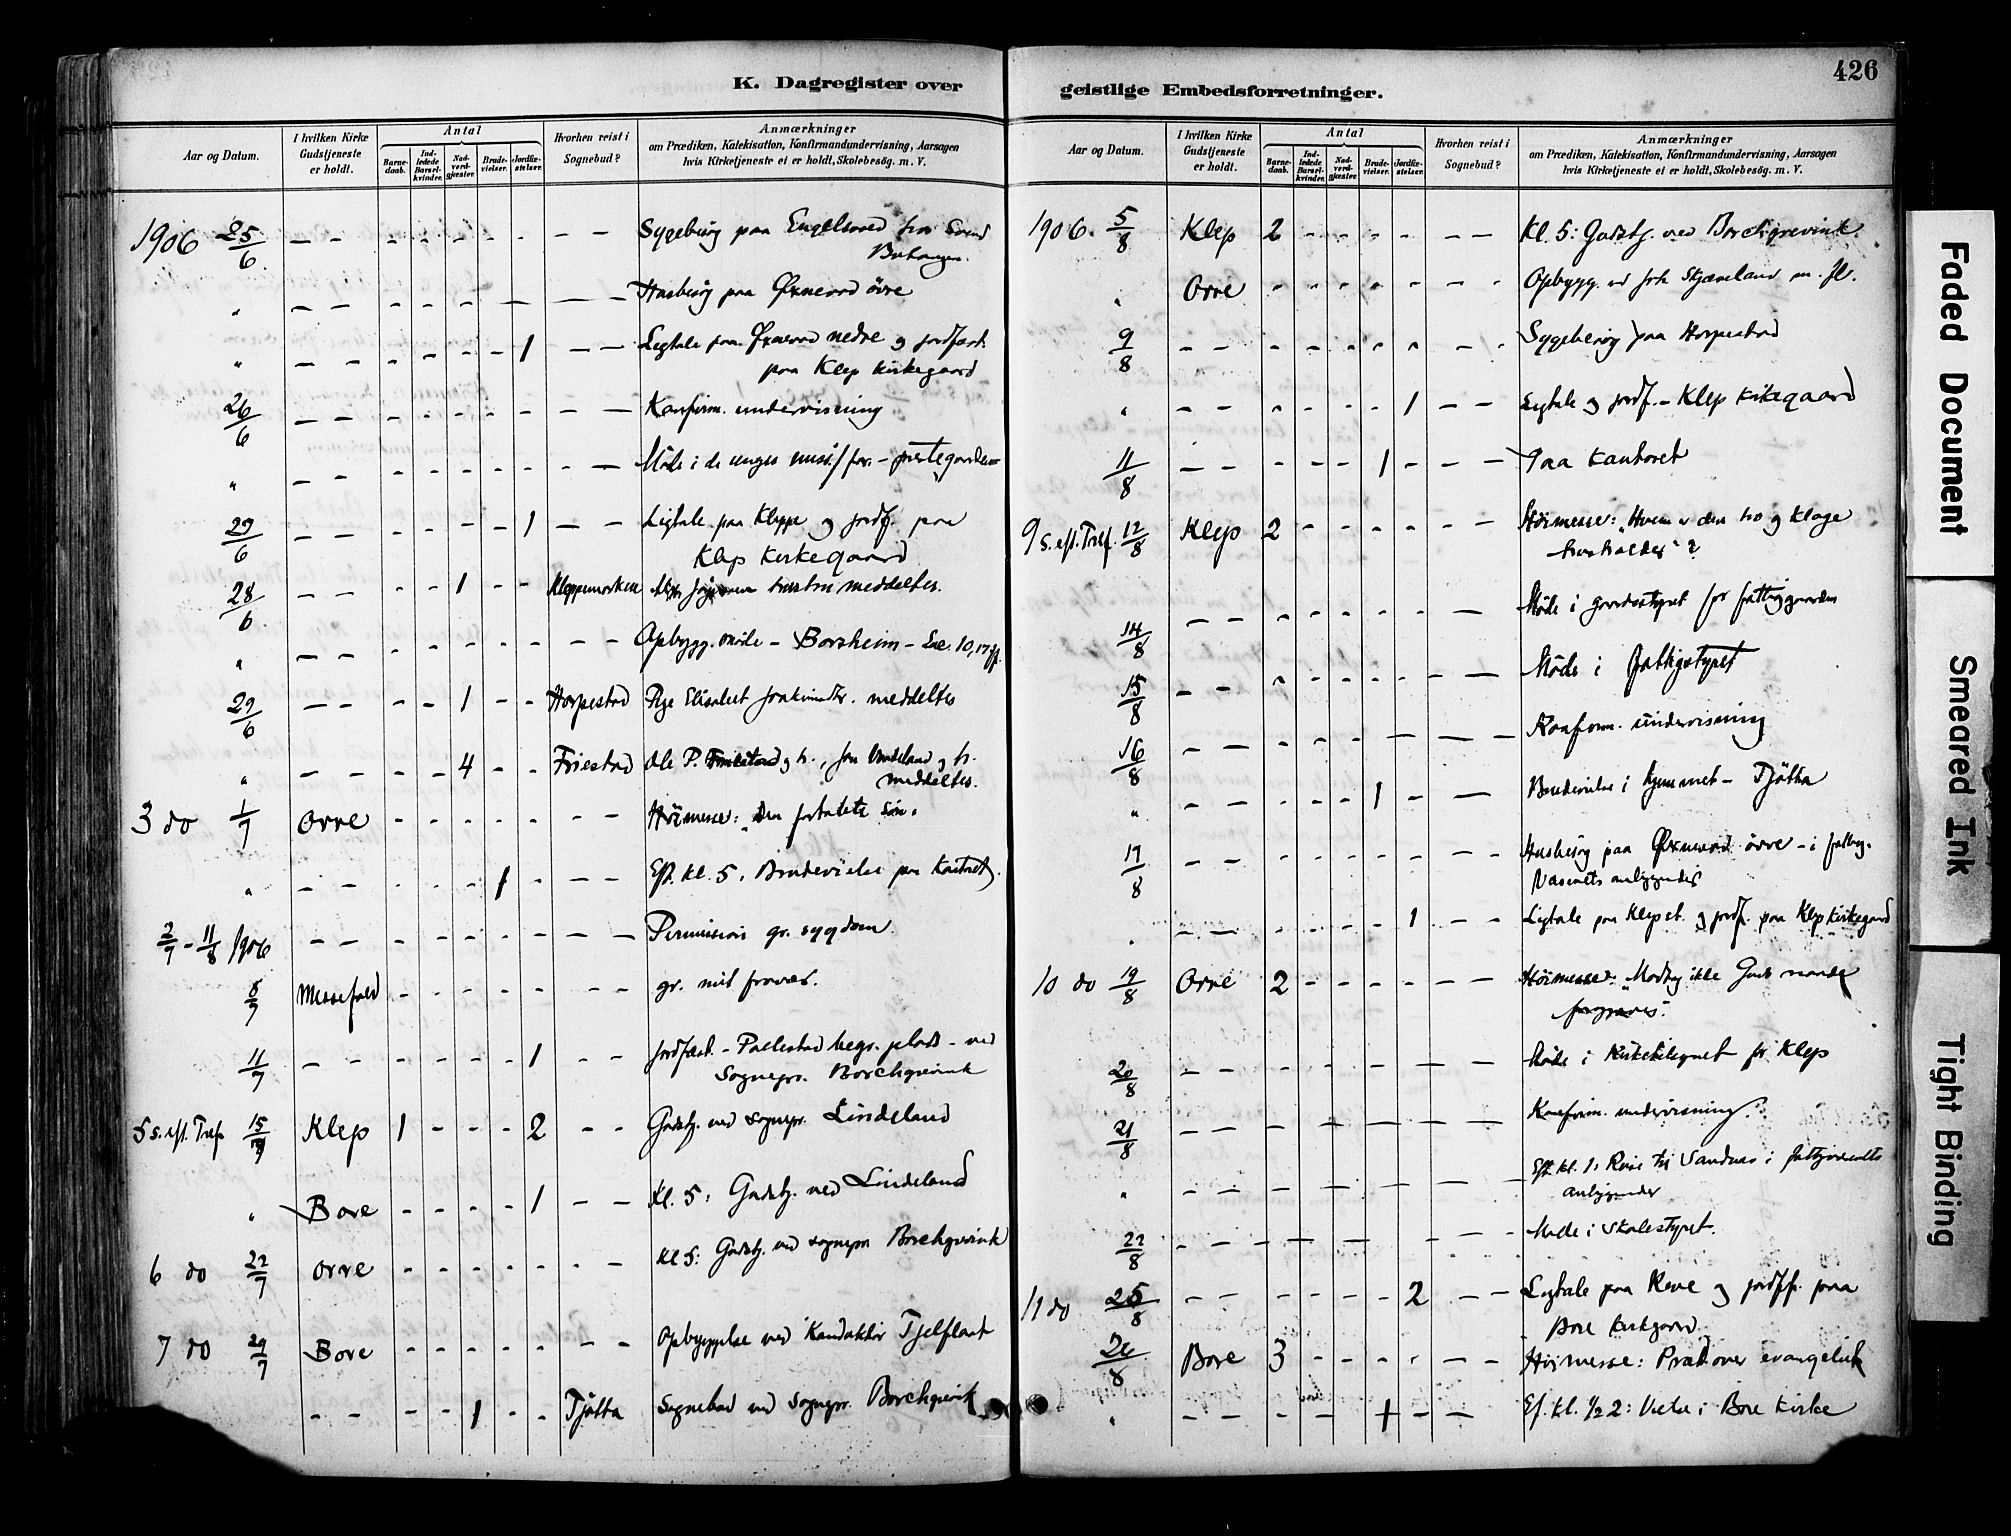 426
K. Dagregister over
geistlige Embedsforretninger.
Aar og Datum.
I hvilken Kirke
Gudstjeneste
er holdt.
Antal
Barne-
daab.
Ind-
ledede
Barsel-
kvinder.
Nad-
verd-
gjæster.
Brude-
vielser.
Jordfæ-
stelser.
Hvorhen reist i
Sognebud?
Anmærkninger
om Prædiken, Katekisation, Konfirmandundervisning, Aarsagen
hvis Kirketjeneste ei er holdt, Skolebesøg. m. V.
1906 25/6 - - - - - - - - - Sygebesøg paa
" - - - - - - - - - Husbesøg paa Øxnevad övre
" - - - - - - 1 - - Ligtale paa Øxnevad nedre og jordfæst.
paa Klep kirkegaard
26/6 - - - - - - - - - Konfirm. undervisning
" - - - - - - - - - Møde i de unges
29/6 - - - - - - 1 - - Ligtale paa Kleppe og jordf. paa
Klep Kirkegaard
28/6 - - - - 1 - - meddeltes.
" - - - - - - - - Opbygg. møde - Borsheim -
29/6 - - - - 1 - - Horpestad Pige Elisabet meddeltes
" - - - - 4 - - Friestad Ole P. og h.,
meddeltes.
3 do 1/7 Orre - - - - - - - - Höimesse: "Den fortabte søn"
" - - - - - 1 - - - Eft. kl. 5. Brudevielse paa Kontoret
2/7 - 11/8 1906 - - - - - - - - - Permission gr. sygdom
8/7 Messefald - - - - - - - - gr. mit fravær.
11/7 - - - - - - 1 - - Jordfæst. - begr. plads - ved
Sognepr. Borchgrevink
5 s. eft. Tref 15/7 Klep 1 - - - 2 - - Gudstj. ved sognepr. Lindeland
" Bore - - - - 1 - - Kl. 5: Gudstj. ved Lindeland
6 do 22/7 Orre - - - - - - - Kl 5: Gudstj. ved sognepr Borchgrevink
7 do 29/7 Bore - - - - - - - Opbyggelse ved Tjelflaat
- - - - 1 - - Tjøtta Sognebud ved Sognepr. Borchgrevink
Aar og Datum.
I hvilken Kirke
Gudstjeneste
er holdt.
Antal
Barne-
daab.
Ind-
ledede
Barsel-
kvinder.
Nad-
verd-
gjæster.
Brude-
vielser.
Jordfæ-
stelser.
Hvorhen reist i
Sognebud?
Anmærkninger
om Prædiken, Katekisation, Konfirmandundervisning, Aarsagen
hvis Kirketjeneste ei er holdt, Skolebesøg. m. V.
1906. 5/8 Klep 2 - - - - - - Kl. 5: Gudstj. ved Borchgrevink
" Orre - - - - - - - Opbygg. ved Skjæveland m. fl.
9/8 - - - - - - - - - Sygebesøg paa Horpestad
" - - - - - - 1 - - Ligtale og jordf. - Klep kirkegaard
11/8 - - - - - 1 - - - Paa Kontoret
9 s. eft. Tref. 12/8 Klep 2 - - - - - - Höimesse: "Hvem er den tro og kloge
husholder"?
14/8 - - - - - - - - - Møde i for fattiggaarden
15/8 - - - - - - - - - Møde i fattigstyret
16/8 - - - - - - - - - Konfirm. undervisning
" - - - - - 1 - - Brudevielse i hjemmet - Tjøtta
17/8 - - - - - - - - - Husbesøg paa Øxnevad övre - i fattig-
væsenets anliggender
" - - - - - - 1 - - Ligtale paa Klep st. og jordf. paa Klep kirkegaard
10 do 19/8 Orre 2 - - - - - - Höimesse: "Modtag ikke Guds naade
forgjæves".
20/8 - - - - - - - - - Møde i Kirketilsynet for Klep
21/8 - - - - - - - - - Konfirm. undervisning.
" - - - - - - - - - Eft. kl. 1: Reise til Sandnæs i fattigvæsenets
anliggender
22/8 - - - - - - - - - Møde i Skolestyret.
11 do 25/8 - - - - - - 2 - - Ligtale paa Reve og jordf. paa
Bore kirkgaard
26/8 Bore 3 - - - - - - Höimesse: Præd. over evangeliet
" - - - - - + - - - Ef. kl. 1/2 2: Vielse i Bore Kirke
Faded Document
Smeared Ink
Tight Binding